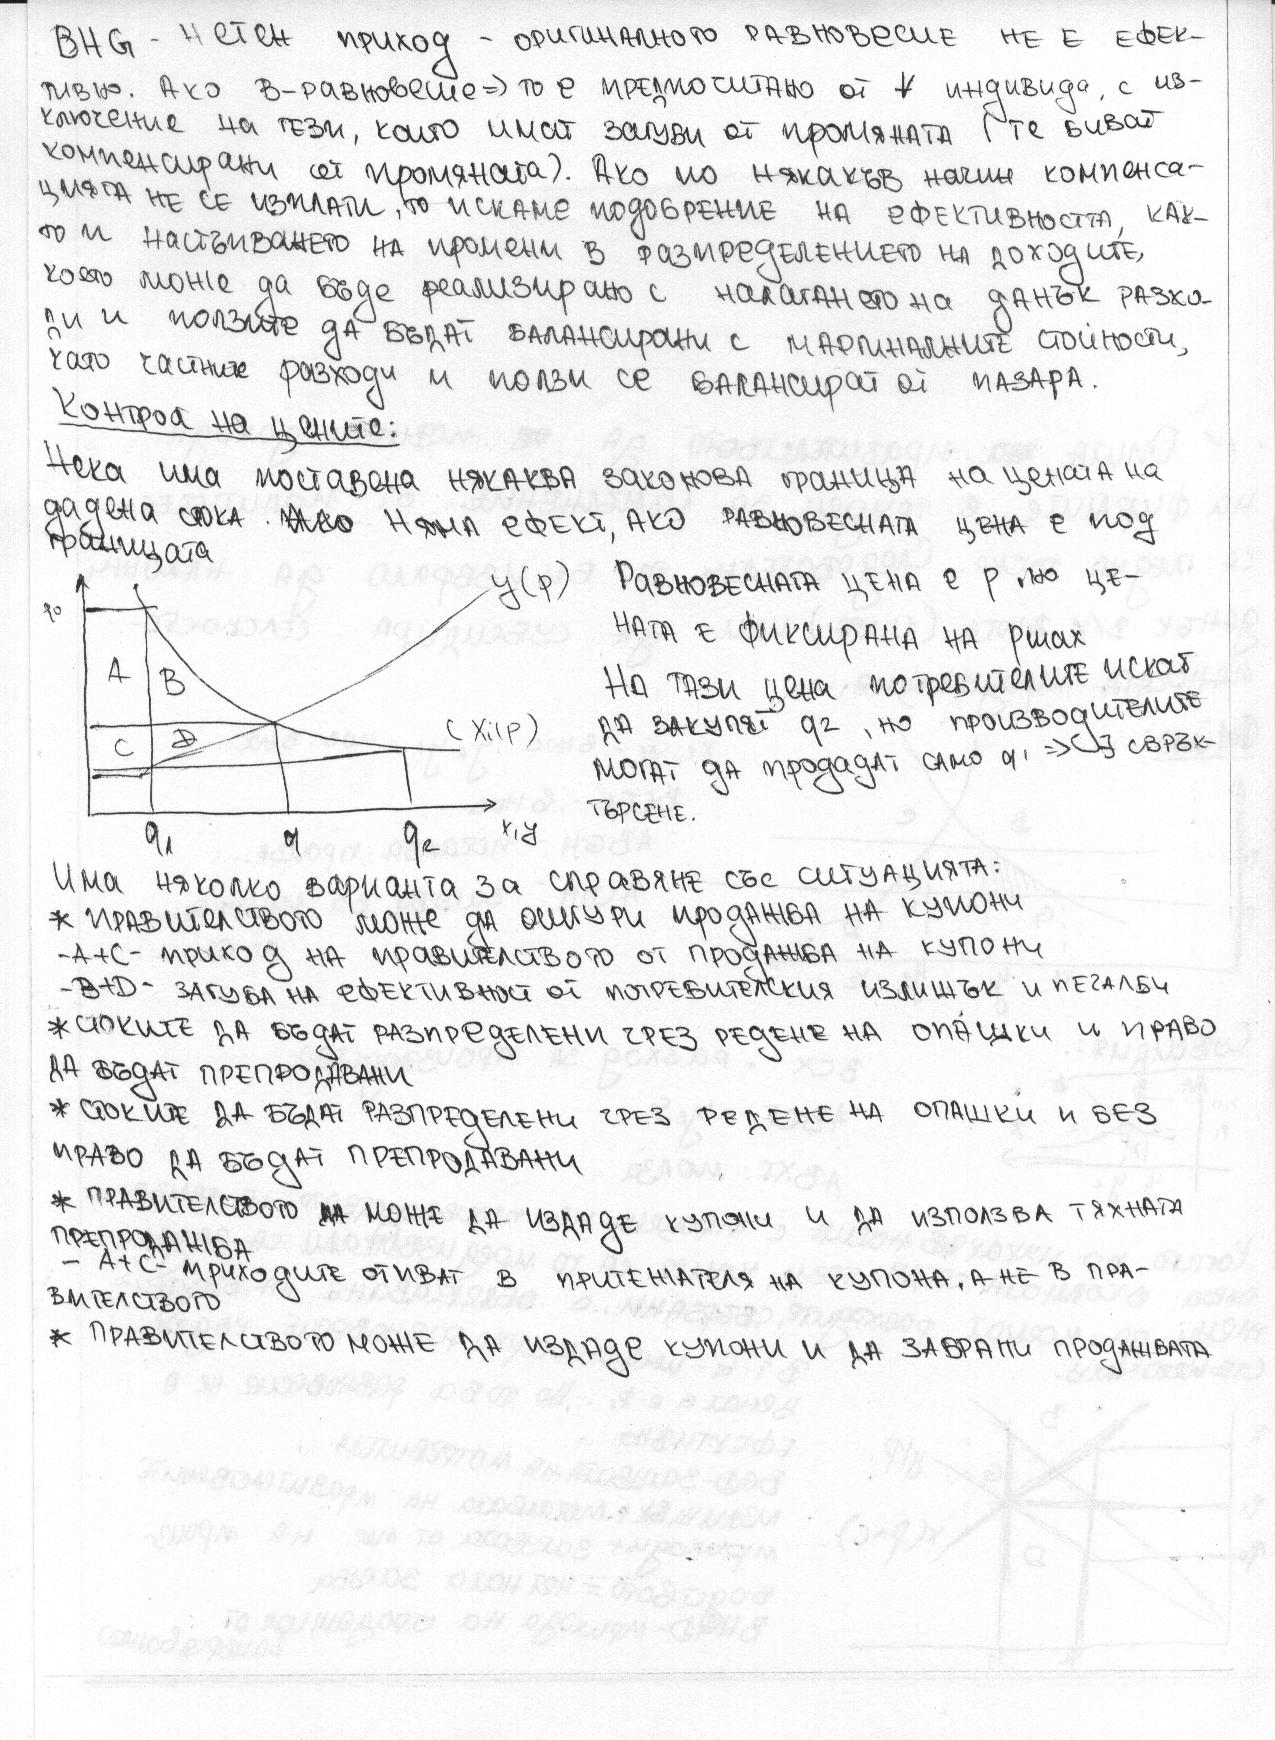 BHG - Нетен приход - оригиналното равновесие не е ефек-
тивно. Ако B-равновесие => то е предпочитано от ∀ индивида, с из-
ключение на тези, които имат загуби от промяната (те биват
компенсирани от промяната). Ако по някакъв начин компенса-
цията не се изплати, то искаме подобрение на ефективността, как-
то и настъпването на промени в разпределението на доходите,
което може да бъде реализирано с налагането на данък разхо-
ди и ползите да бъдат балансирани с маргиналните стойности,
като частните разходи и ползи се балансират от пазара.
Контрол на цените:
Нека има поставена някаква законова граница на цената на
дадена стока. Няма ефект, ако равновесната цена е под
границата
y(p) Равновесната цена е p, но це-
p0
ната е фиксирана на pmax
A B
На тази цена потребителите искат
да закупят q2, но производителите
C D (Xi(p)
могат да продадат само q1 => ∃ свръх-
търсене.
q1 q q2 x,y
Има няколко варианта за справяне със ситуацията:
* правителството може да осигури продажба на купони
- A+C - приход на правителството от продажба на купони
- B+D - загуба на ефективност от потребителския излишък и печалби
* стоките да бъдат разпределени чрез редене на опашки и право
да бъдат препродавани
* стоките да бъдат разпределени чрез редене на опашки и без
право да бъдат препродавани
* правителството да може да издаде купони и да използва тяхната
препродажба
- A+C - приходите отиват в притежателя на купона, а не в пра-
вителството
* правителството може да издаде купони и да забрани продажбата